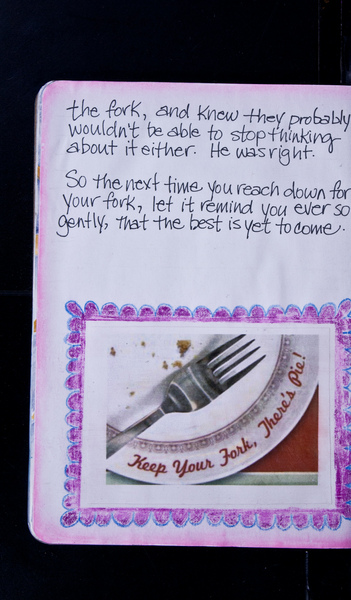 the fork, and knew they probably
wouldn't be able to stop thinking
about it either. He was right.
So the next time you reach down for
your fork, let it remind you ever so
gently, that the best is yet to come.
Keep Your Fork, There's Pie!